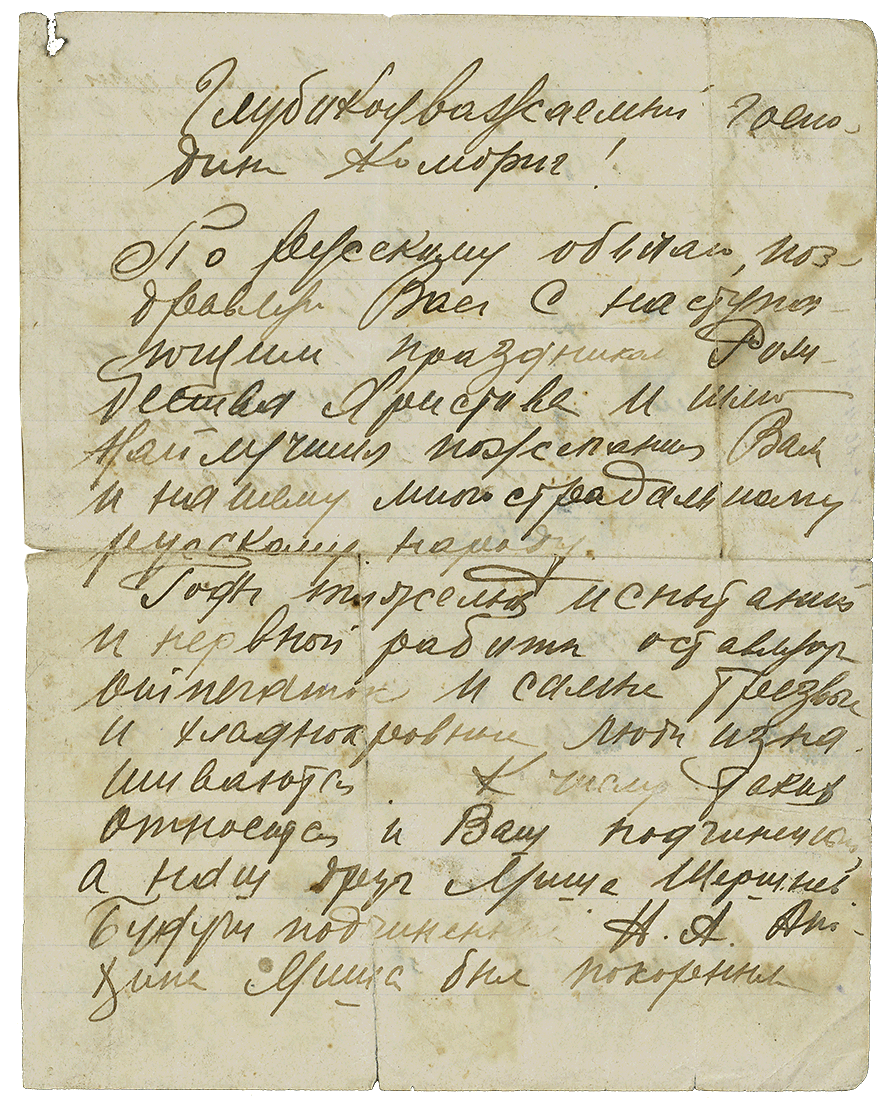 Глубокоуважаемый госпо-
дин Коморич!
По Русскому обычаю, поз-
дравляю Вас с наступа-
ющим праздником Рож-
дества Христова и шлю
наилучших пожелания Вам
и нашему многострадальному
русскому народу.
Годы тяжелых испытаний
и нервной работы оставляют
отпечаток и самые трезвые
и хладнокровные люди изна-
шиваются. К числу таких
относится и Ваш подчиненный,
а наш друг Миша
Будучи подчиненным Н. А.
Миша был покорным